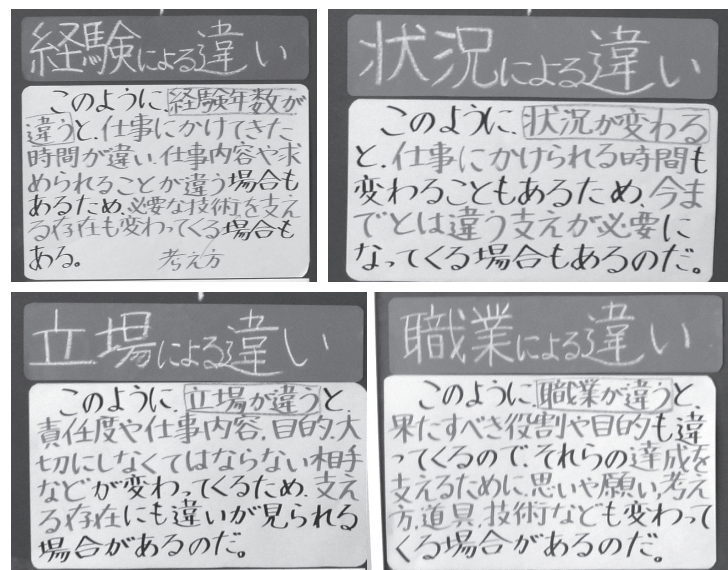 経験による違い
このように、経験年数が
違うと、仕事にかけてきた
時間が違い、仕事内容や求
められることが違う場合も
あるため、必要な技術を支え
る存在も変わってくる場合も
ある。 考え方
状況による違い
このように、状況が変わる
と、仕事にかけられる時間も
変わることもあるため、今ま
でとは違う支えが必要に
なってくる場合もあるのだ。
立場による違い
このように、立場が違うと、
責任度や仕事内容、目的、大
切にしなくてはならない相手
などが変わってくるため、支え
る存在にも違いが見られる
場合があるのだ。
職業による違い
このように、職業が違うと、
果たすべき役割や目的も違
ってくるので、それらの達成を
支えるために、思いや願い、考え
方、道具、技術なども変わって
くる場合があるのだ。